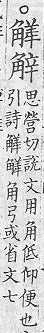 ○觲觧
思營切說文用角低仰便也
引詩觲觲角弓或省文七